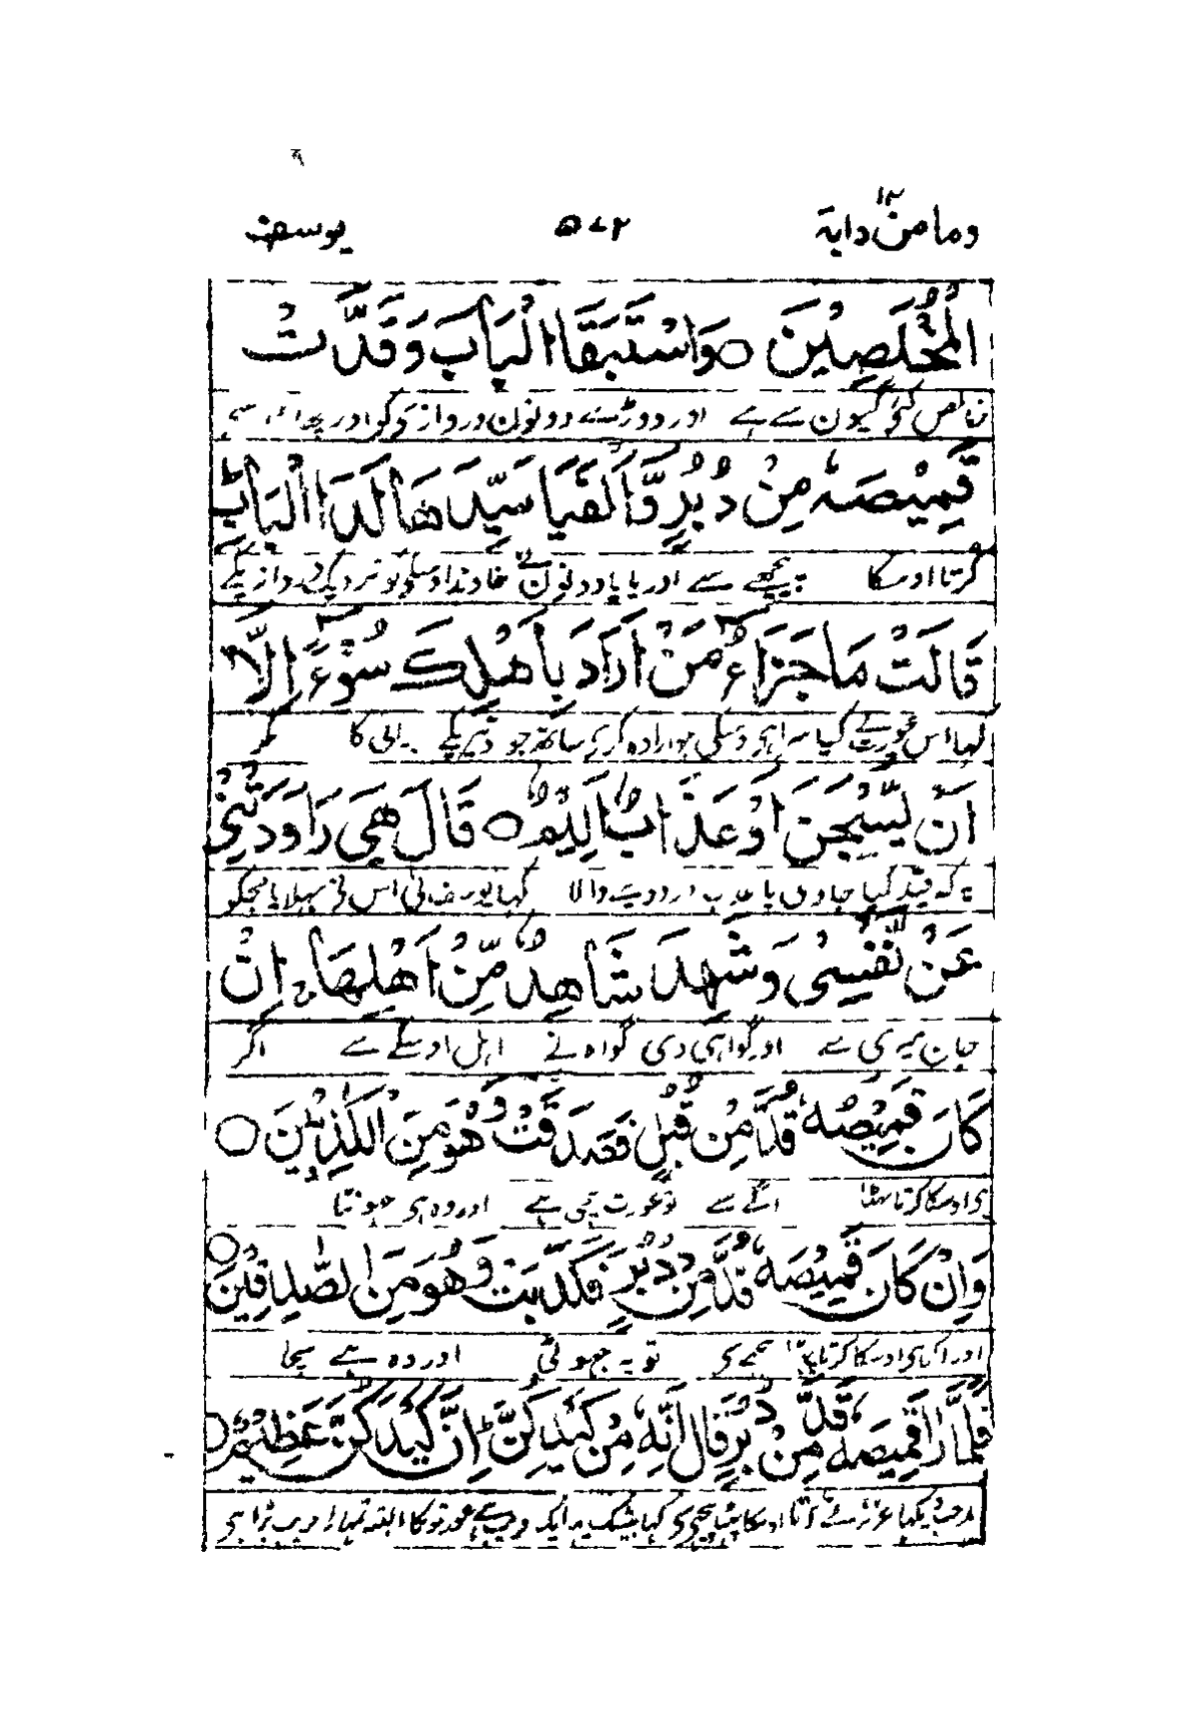 وما من دابة ۱۲
۵۷۲
يوسف
الْمُخْلَصِيْنَ ○ وَاسْتَبَقَا الْبَابَ وَقَدَّتْ
خالص کئے گیون سے ہے اور دوڑے دونون دروازے کو اور
قَمِيْصَهٗ مِنْ دُبُرٍ وَّاَلْفَيَا سَيِّدَهَا لَدَا الْبَابِؕ
کرتا اوسکا پیچھے سے اور پایا دونون نے خاوند اوسکے کو نزدیک دروازیکے
قَالَتْ مَا جَزَآءُ مَنْ اَرَادَ بِاَهْلِكَ سُوْٓءًا اِلَّآ
کہا اس عورت نے کیا سزا ہے اوسکی جو ارادہ کرے ساتھ جورو تیریکے برائی کا مگر
اَنْ يُّسْجَنَ اَوْ عَذَابٌ اَلِيْمٌ ○ قَالَ هِيَ رَاوَدَتْنِيْ
یہ کہ قید کیا جاوی یا عذاب درد دینے والا کہا یوسف نے اس نی بہلایا مجکو
عَنْ نَّفْسِيْ وَشَهِدَ شَاهِدٌ مِّنْ اَهْلِهَاۚ اِنْ
جان میری سے اور گواہی دی گواہ نے اہل اوسکے سے اگر
كَانَ قَمِيْصُهٗ قُدَّ مِنْ قُبُلٍ فَصَدَقَتْ وَهُوَ مِنَ الْكٰذِبِيْنَ ○
ہی اوسکا کرتا پھٹا اگے سے تو عورت سچی ہے اور وہ ہی جھوٹا
وَاِنْ كَانَ قَمِيْصُهٗ قُدَّ مِنْ دُبُرٍ فَكَذَبَتْ وَهُوَ مِنَ الصّٰدِقِيْنَ ○
اور اگر ہی اوسکا کرتا پھٹا پیچھے سے تو یہ جھوٹی اور وہ ہے سچا
فَلَمَّا رَاٰ قَمِيْصَهٗ قُدَّ مِنْ دُبُرٍ قَالَ اِنَّهٗ مِنْ كَيْدِكُنَّؕ اِنَّ كَيْدَكُنَّ عَظِيْمٌ ○
جب دیکھا عزیز نے کرتا اوسکا پھٹا پیچھے سے کہا بیشک یہ ایک فریب ہے عورتو کا البتہ تمہارا فریب بڑا ہی